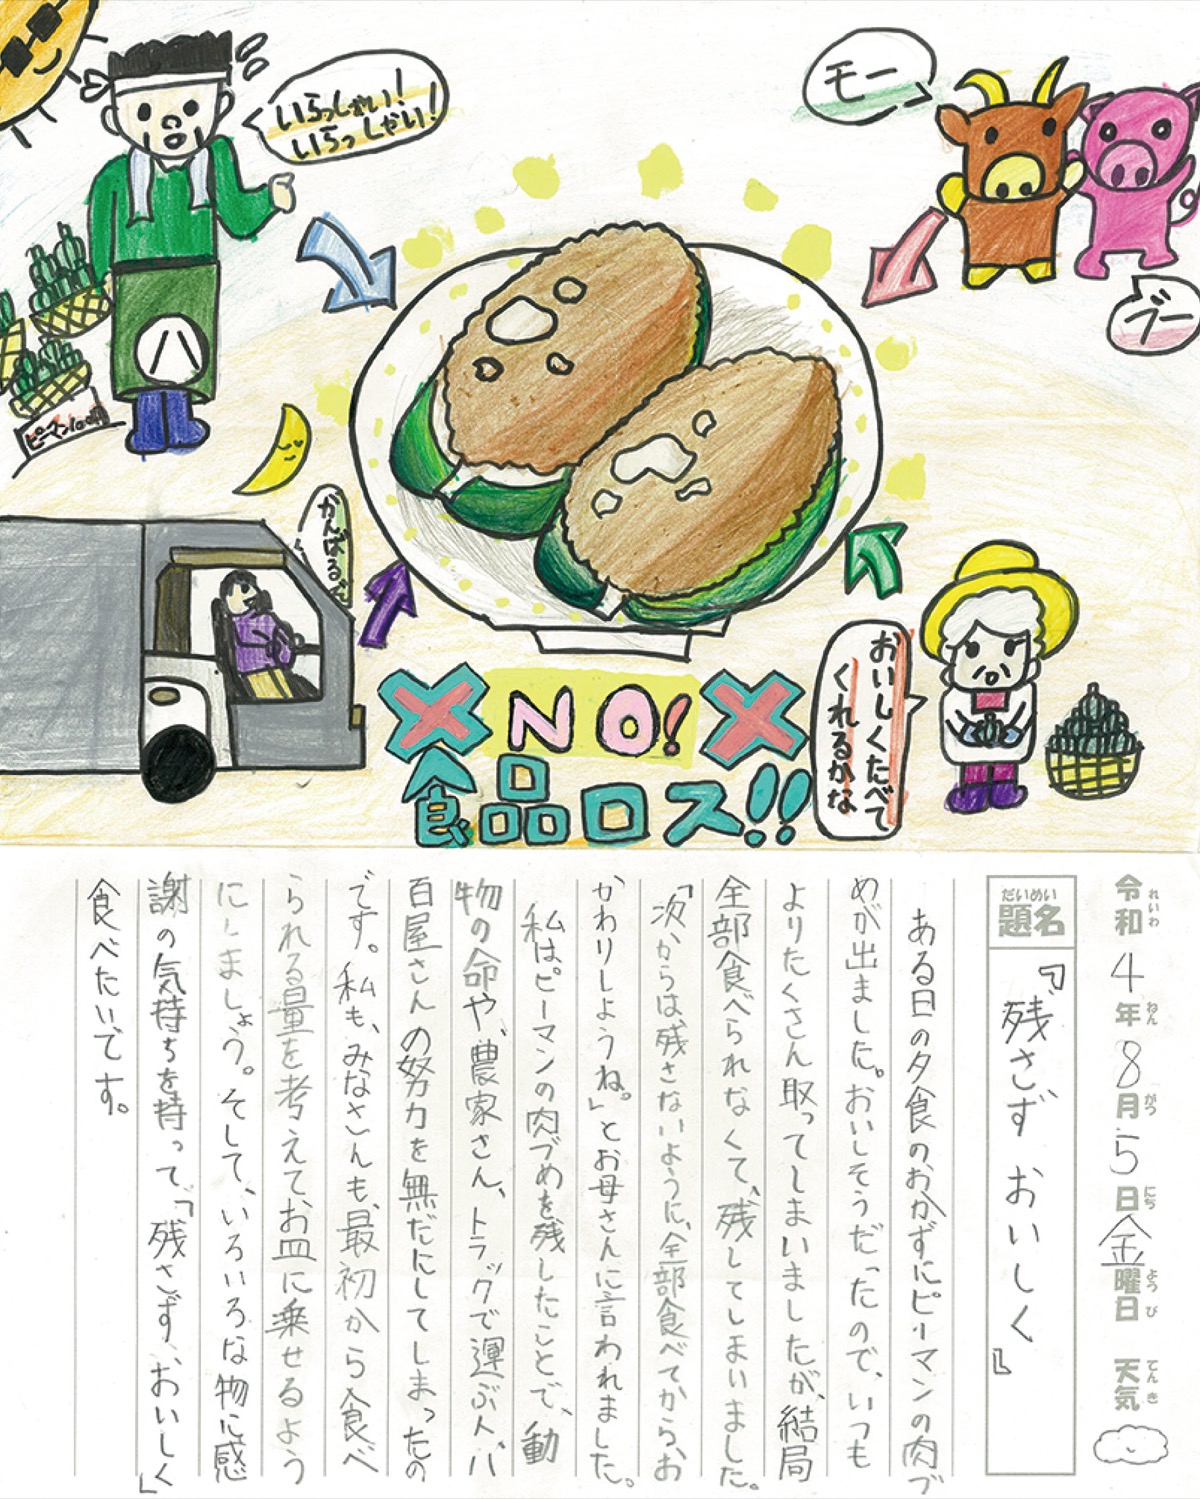 いらっしゃい!
いらっしゃい!
モー
ブー
八
ピーマン100円
がんばるぞ
NO!
食品ロス!!
おいしくたべて
くれるかな
令和4年8月5日金曜日 天気
れいわ ねん がつ にち ようび てんき
だいめい
題名
『残さず おいしく』
ある日の夕食のおかずにピーマンの肉づ
めが出ました。おいしそうだったので、いつも
よりたくさん取ってしまいましたが、結局
全部食べられなくて、残してしまいました。
「次からは残さないように、全部食べてから、お
かわりしようね。」とお母さんに言われました。
私はピーマンの肉づめを残したことで、動
物の命や、農家さん、トラックで運ぶ人、八
百屋さんの努力を無だにしてしまったの
です。私も、みなさんも、最初から食べ
られる量を考えてお皿に乗せるよう
にしましょう。そして、いろいろな物に感
謝の気持ちを持って、「残さず、おいしく」
食べたいです。